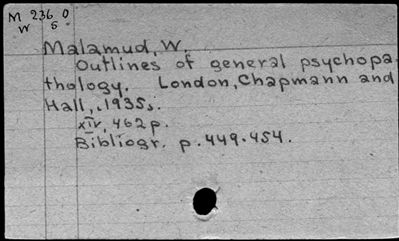 M 236 0
W 5.
Malamud, W.
Outlines of general psychopa-
thology. London, Chapmann and
Hall, 1935.
XIV, 462 p.
Bibliogr. p. 449-454.